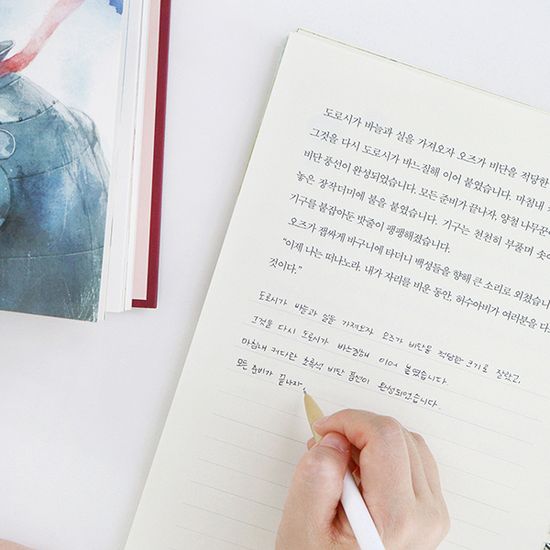 도로시가 바늘과 실을 가져오자 오즈가 비단을 적당한
그것을 다시 도로시가 바느질해 이어 붙였습니다. 마침내
비단 풍선이 완성되었습니다. 모든 준비가 끝나자, 양철 나무꾼
놓은 장작더미에 불을 붙였습니다. 기구는 천천히 부풀며 솟아
기구를 붙잡아둔 밧줄이 팽팽해졌습니다.
오즈가 잽싸게 바구니에 타더니 백성들을 향해 큰 소리로 외쳤습니
“이제 나는 떠나노라. 내가 자리를 비운 동안, 허수아비가 여러분을 다
것이다.”
도로시가 바늘과 실을 가져오자 오즈가 비단을 적당한 크기로 잘랐고,
그것을 다시 도로시가 바느질해 이어 붙였습니다.
마침내 커다란 초록색 비단 풍선이 완성되었습니다.
모든 준비가 끝나자,